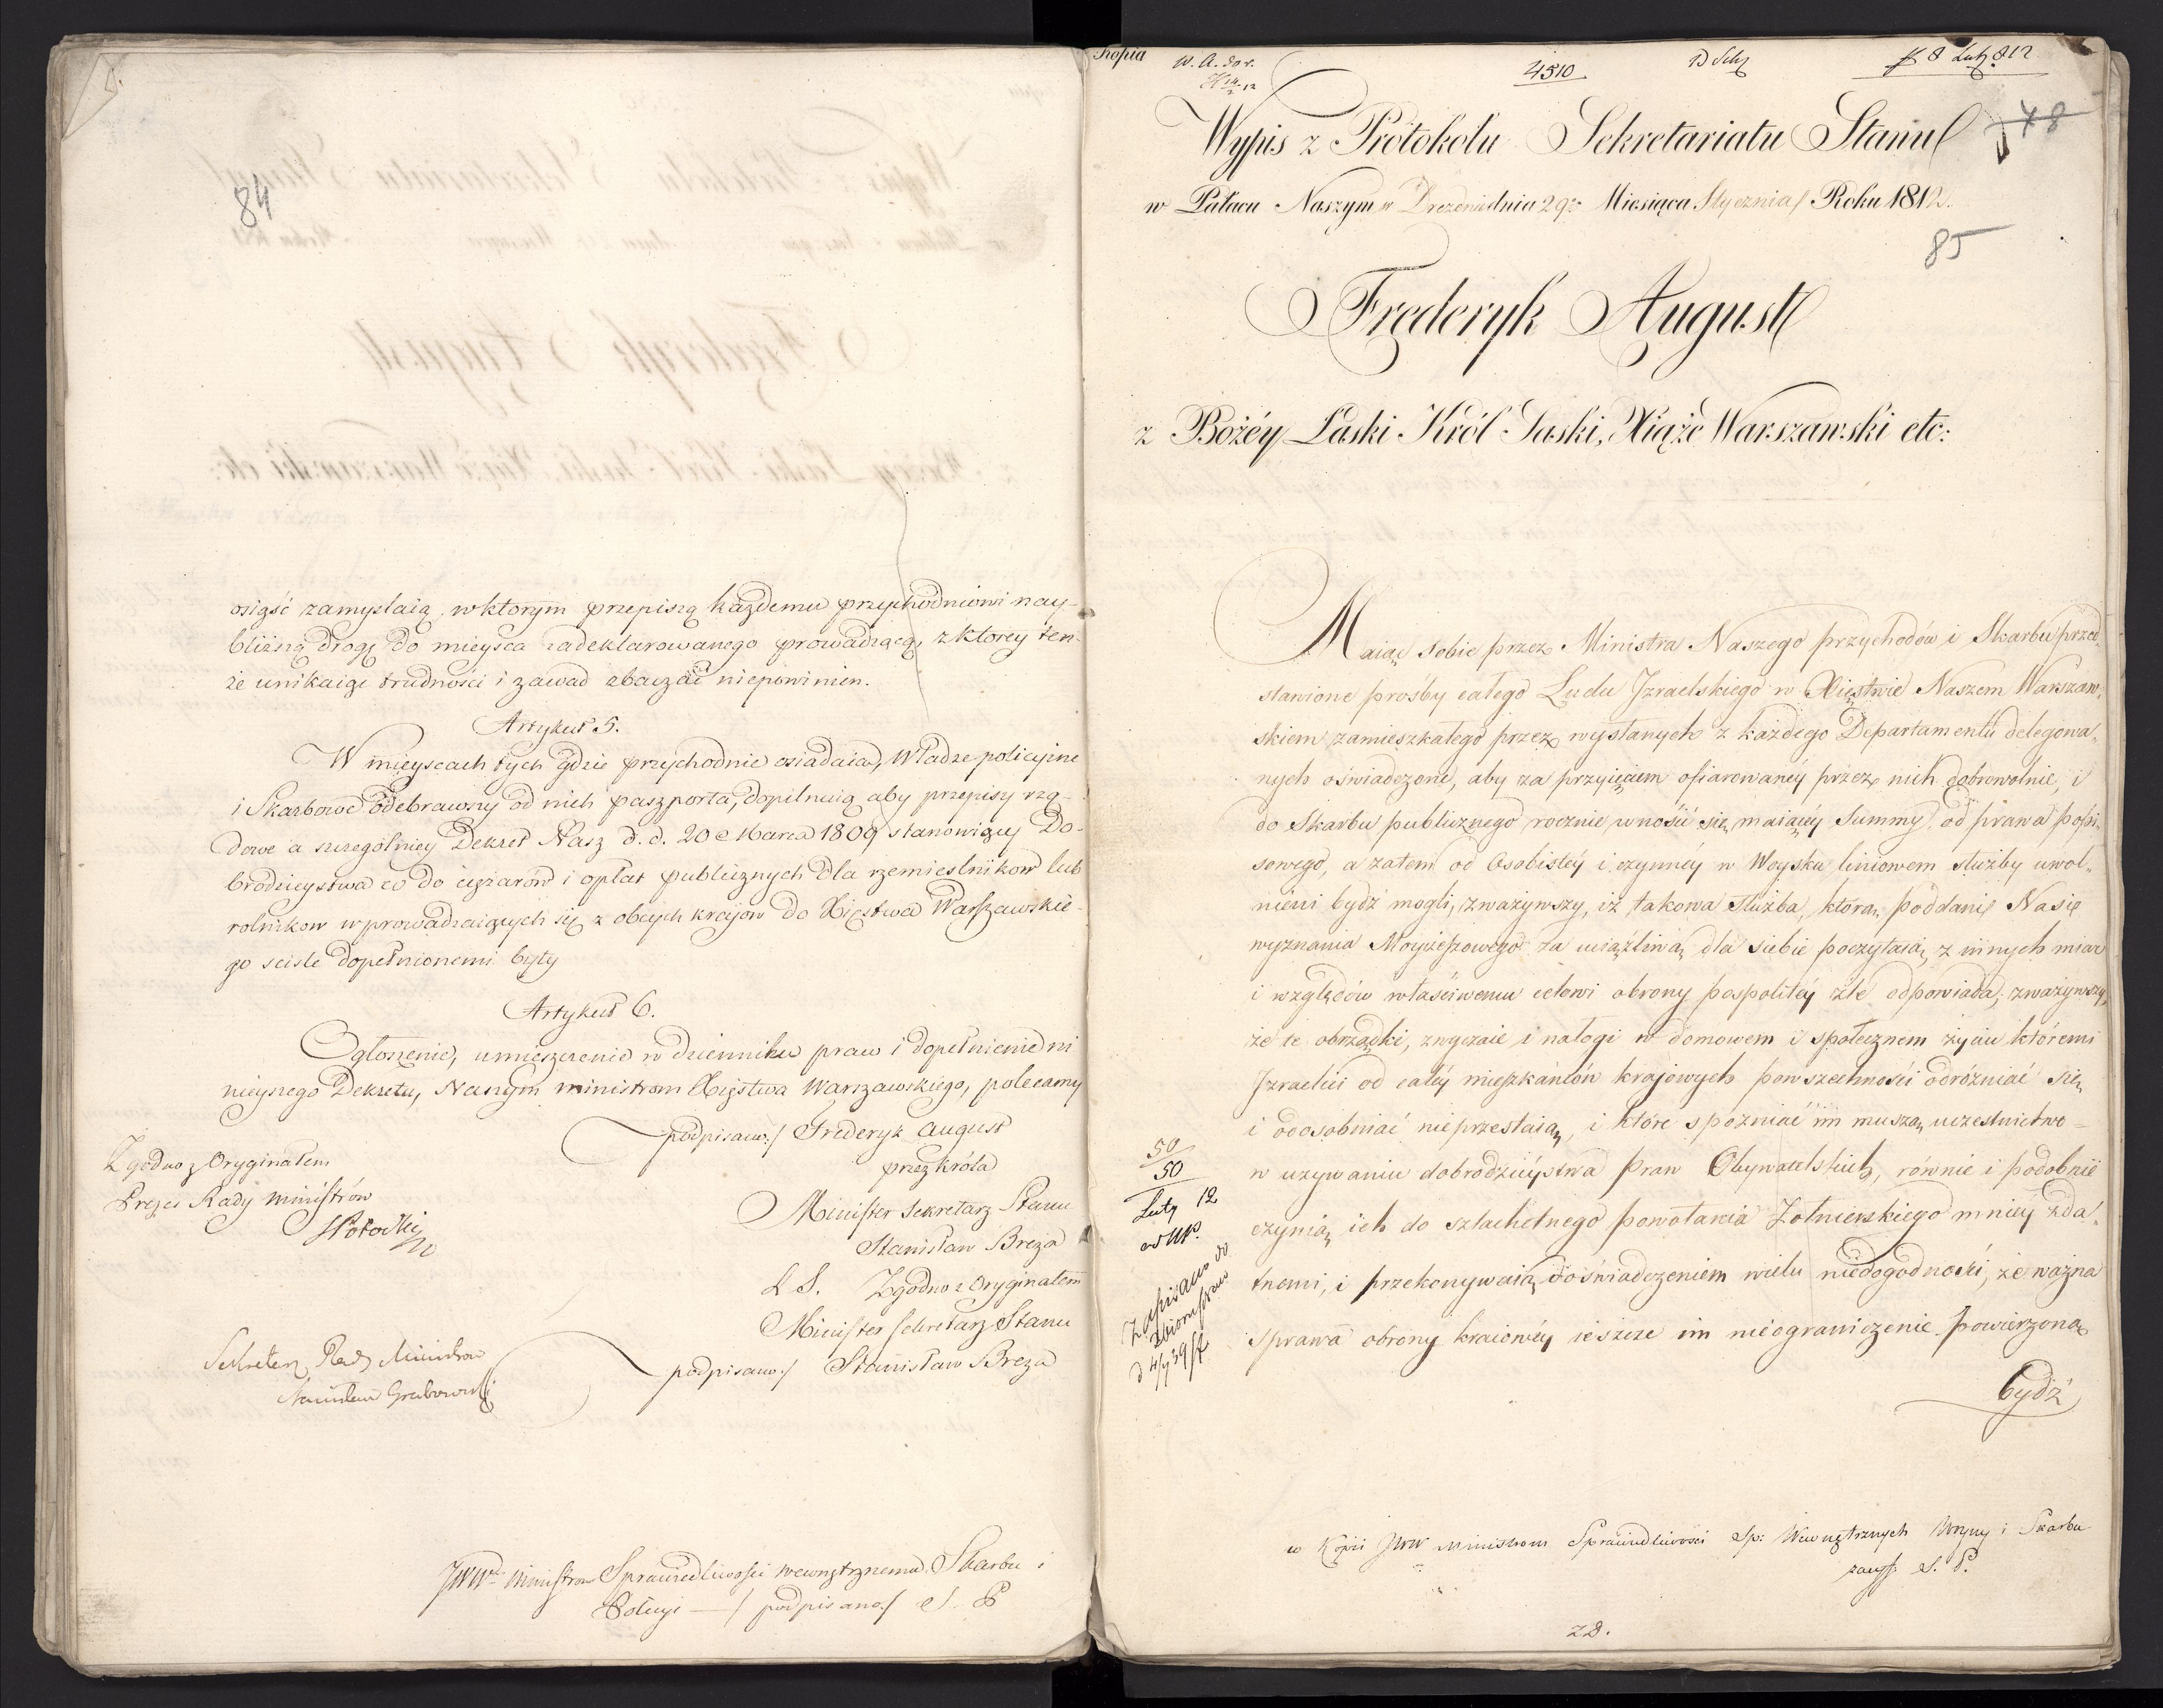 84
osięść zamyslaią, w ktorym przepiszą każdemu przychodniowi nay-
bliższą drogę do mieysca zadeklarowanego prowadzącą, z ktorey ten-
że unikaiąc trudnosci i zawad zbaczać niepowinien.
Artykuł 5.
W mieyscach tych gdzie przychodnie osiadaią, Władze policyine
i Skarbowe odebrawszy od nich paszporta, dopilnuią aby przepisy rzą-
dowe a szczegolniey Dekret Nasz d. d. 20 Marca 1809 stanowiący Do-
brodzieystwa co do ciężarów i opłat publicznych dla rzemieslnikow lub
rolnikow wprowadzaiących się z obcych kraiow do Xięstwa Warszawskie-
go scisle dopełnionemi były
Artykuł 6.
Ogłoszenie, umieszczenie w dzienniku praw i dopełnienie ni
nieyszego Dekretu, Naszym ministrom Xięstwa Warszawskiego, polecamy
podpisano:/ Frederyk August
przez króla
Minister Sekretarz Stanu
Stanisław Breza
L. S. Zgodno z Oryginałem
Minister Sekretarz Stanu
podpisano:/ Stanisław Breza
Zgodno z Oryginałem
Prezes Rady Ministrów
SPotocki
Sekretarz Rady Ministrow
Stanisław Grabowski
JWW Ministrom Sprawiedliwości wewnętrznemu, Skarbu i
Policyi —/ podpisano:/ S. P
Kopia
4510
8 Lut. 812
Wypis z Protokołu Sekretariatu Stanu
48
w Pałacu Naszym w Dreznie dnia 29º Miesiąca Stycznia Roku 1812.
85
Frederyk August
z Bożéy Łaski Król Saski, Xiąże Warszawski etc:
Maiąc sobie przez Ministra Naszego przychodów i Skarbu przed-
stawione prośby całego Ludu Jzraelskiego w Xięstwie Naszem Warszaw-
skiem zamieszkałego przez wysłanych z każdego Departamentu delegowa-
nych oświadczone, aby za przyięciem ofiarowanéy przez nich dobrowolnie, i
do Skarbu publicznego rocznie wnosić się maiącéy Summy, od prawa popi-
sowego, a zatem od Osobistéy i czynnéy w Woysku liniowem służby uwol-
nieni bydź mogli, zważywszy, iż takowa służba, którą poddani Nasi
wyznania Moyżeszowego za uciążliwą dla siebie poczytaią, z innych miar
i względów właściwemu celowi obrony pospolitéy źle odpowiada; zważywszy,
że te obrządki, zwyczaie i nałogi w domowem i społecznem życiu któremi
Jzraelici od całéy mieszkańców krajowych powszechności odróżniać się
i odosobniać nieprzestaią, i które spoźniać im muszą uczestnictwo
w używaniu dobrodzieystwa Praw Obywatelskich, równie i podobnie
czynią ich do szlachetnego powołania Żołnierskiego mniéy zda-
tnemi, i przekonywaią doświadczeniem wielu niedogodności, że ważna
sprawa obrony kraiowéy ieszcze im nieograniczenie powierzoną
bydź
50
50
Luty 12
Zapisano do
Zbioru praw
w Kopii JWW Ministrom Sprawiedliwości Sp: Wewnętrznych Woyny i Skarbu
S. P.